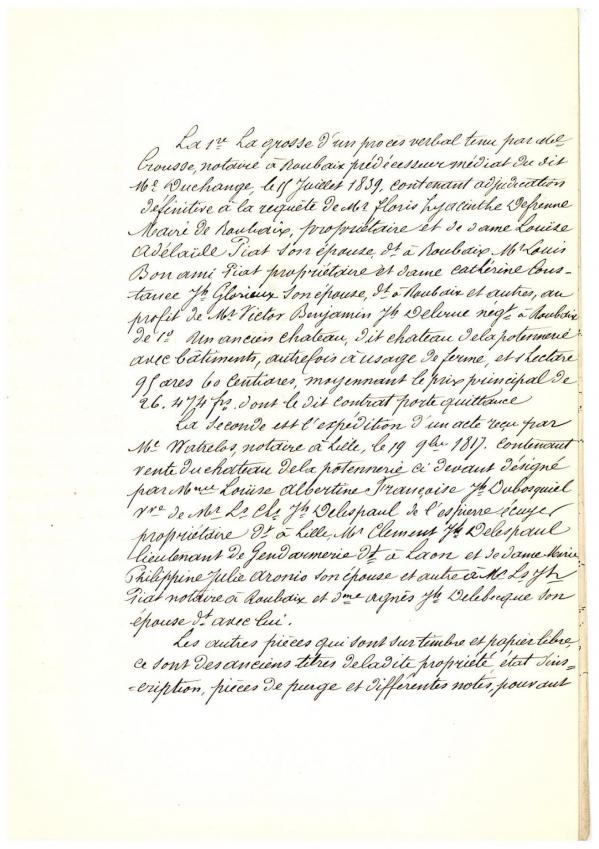 La 1re La grosse d'un procès verbal tenu par Me
Crousse, notaire à Roubaix prédécesseur médiat du dit
Me Duchange, le 15 Juillet 1839, contenant adjudication
définitive à la requête de Mr Floris hyacinthe Defrenne
Maire de Roubaix, propriétaire et de dame Louise
Adélaïde Piat son épouse, dt à Roubaix Mr Louis
Bon ami Piat propriétaire et dame Catherine Cons-
tance Jh Glorieux son épouse, dt à Roubaix et autres, au
profit de Mr Victor Benjamin Jh Delerue negt à Roubaix
de 1o Un ancien chateau, dit chateau de la potennerie
avec bâtiments, autrefois à usage de ferme, et 1 hectare
95 ares 60 centiares, moyennant le prix principal de
26.474 fs. dont le dit contrat porte quittance
La seconde est l'expédition d'un acte reçu par
Me Watrelos, notaire à Lille, le 19 9bre 1817. contenant
vente du chateau de la potennerie ci devant désigné
par Mme Louise Albertine Françoise Jh Dubosquiel
vve de Mr Ls Ch. Jh Delespaul de l'espierre écuyer
propriétaire dt à Lille, Mr Clement Jh Delespaul
lieutenant de Gendarmerie dt à Laon et de dame Marie
Philippine Julie Aronio son épouse et autre à Me Ls Jh
Piat notaire à Roubaix et dme Agnès Jh Delebecque son
épouse dt avec lui.
Les autres pièces qui sont sur timbre et papier libre,
ce sont des anciens titres de la dite propriété, état d'ins-
-cription, pièces de purge et différentes notes, pouvant